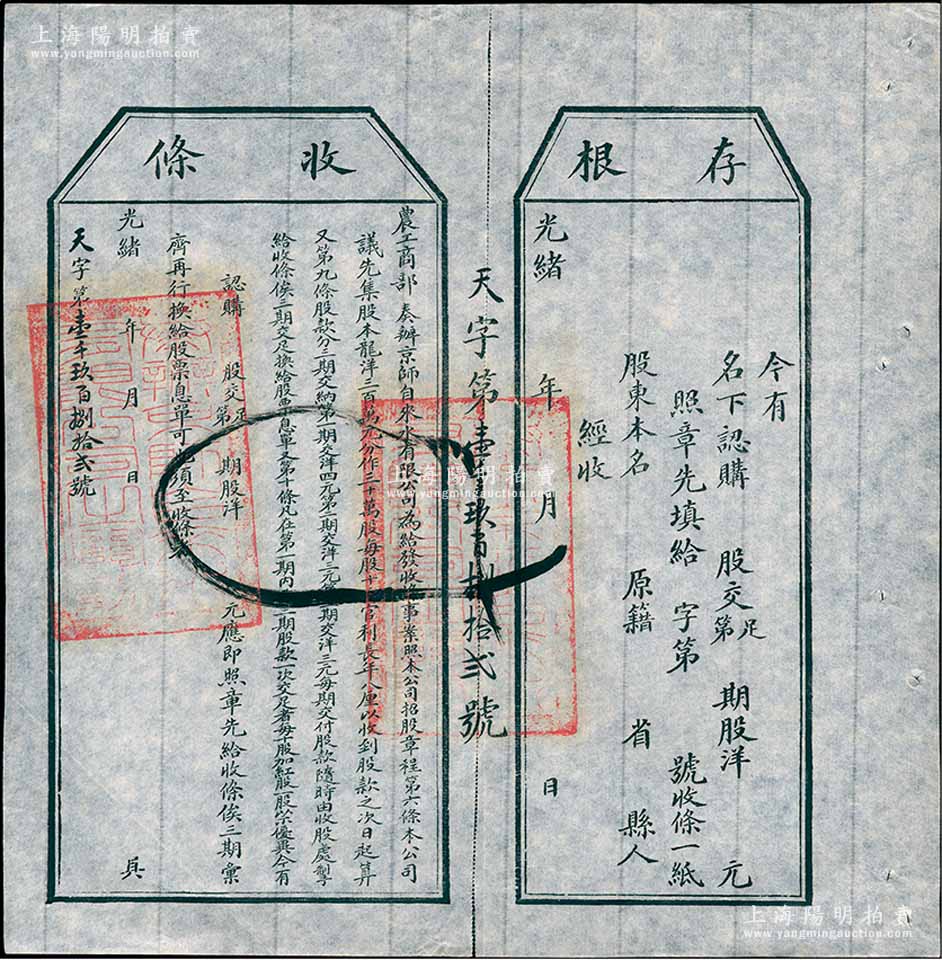 上海陽明拍賣
www.yangmingauction.com
存根
今有
名下認購 股交第足 期股洋 元
照章先填給 字第 號收條一紙
股東本名 原籍 省 縣人
經收
光緒 年 月 日
天字第壹千玖百捌拾弍號
收條
農工商部 奏辦京師自來水有限公司為給發收條事案照本公司招股章程第六條本公司
議先集股本龍洋三百萬元分作三十萬股每股十 官利長年八厘以收到股款之次日起算
又第九條股款分三期交納第一期交洋四元第二期交洋三元第三期交洋三元每期交付股款隨時由收股處掣
給收條俟三期交足換給股票息單又第十條凡在第一期內 三期股款一次交足者每十股加紅股一股以示優異今有
認購 股交第足 期股洋 元應即照章先給收條俟三期彙
齊再行換給股票息單可 須至收條者
光緒 年 月 日 具
天字第壹千玖百捌拾弍號
上海陽明拍賣
www.yangmingauction.com
上海陽明拍賣
www.yangmingauction.com